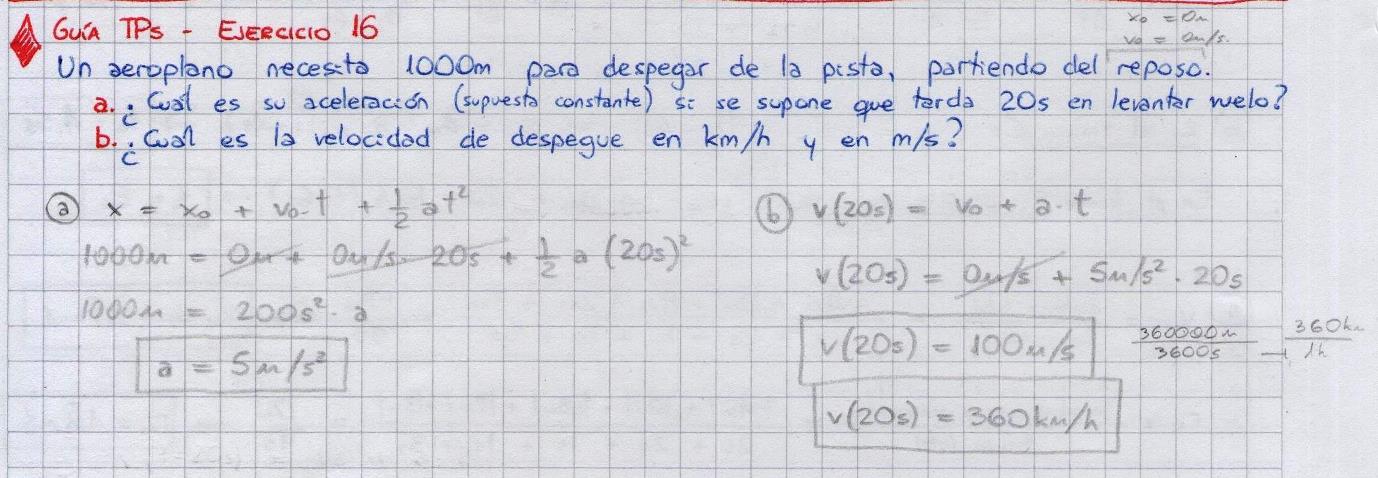 GUÍA TPs - EJERCICIO 16
x₀ = 0m
v₀ = 0m/s.
Un aeroplano necesita 1000m para despegar de la pista, partiendo del reposo.
a. ¿Cuál es su aceleración (supuesta constante) si se supone que tarda 20s en levantar vuelo?
b. ¿Cuál es la velocidad de despegue en km/h y en m/s?
ⓐ x = x₀ + v₀·t + 1/2 at²
1000m = 0m + 0m/s · 20s + 1/2 a (20s)²
1000m = 200s² · a
a = 5m/s²
ⓑ v(20s) = v₀ + a·t
v(20s) = 0m/s + 5m/s² · 20s
v(20s) = 100m/s
360000m/3600s → 360km/1h
v(20s) = 360km/h